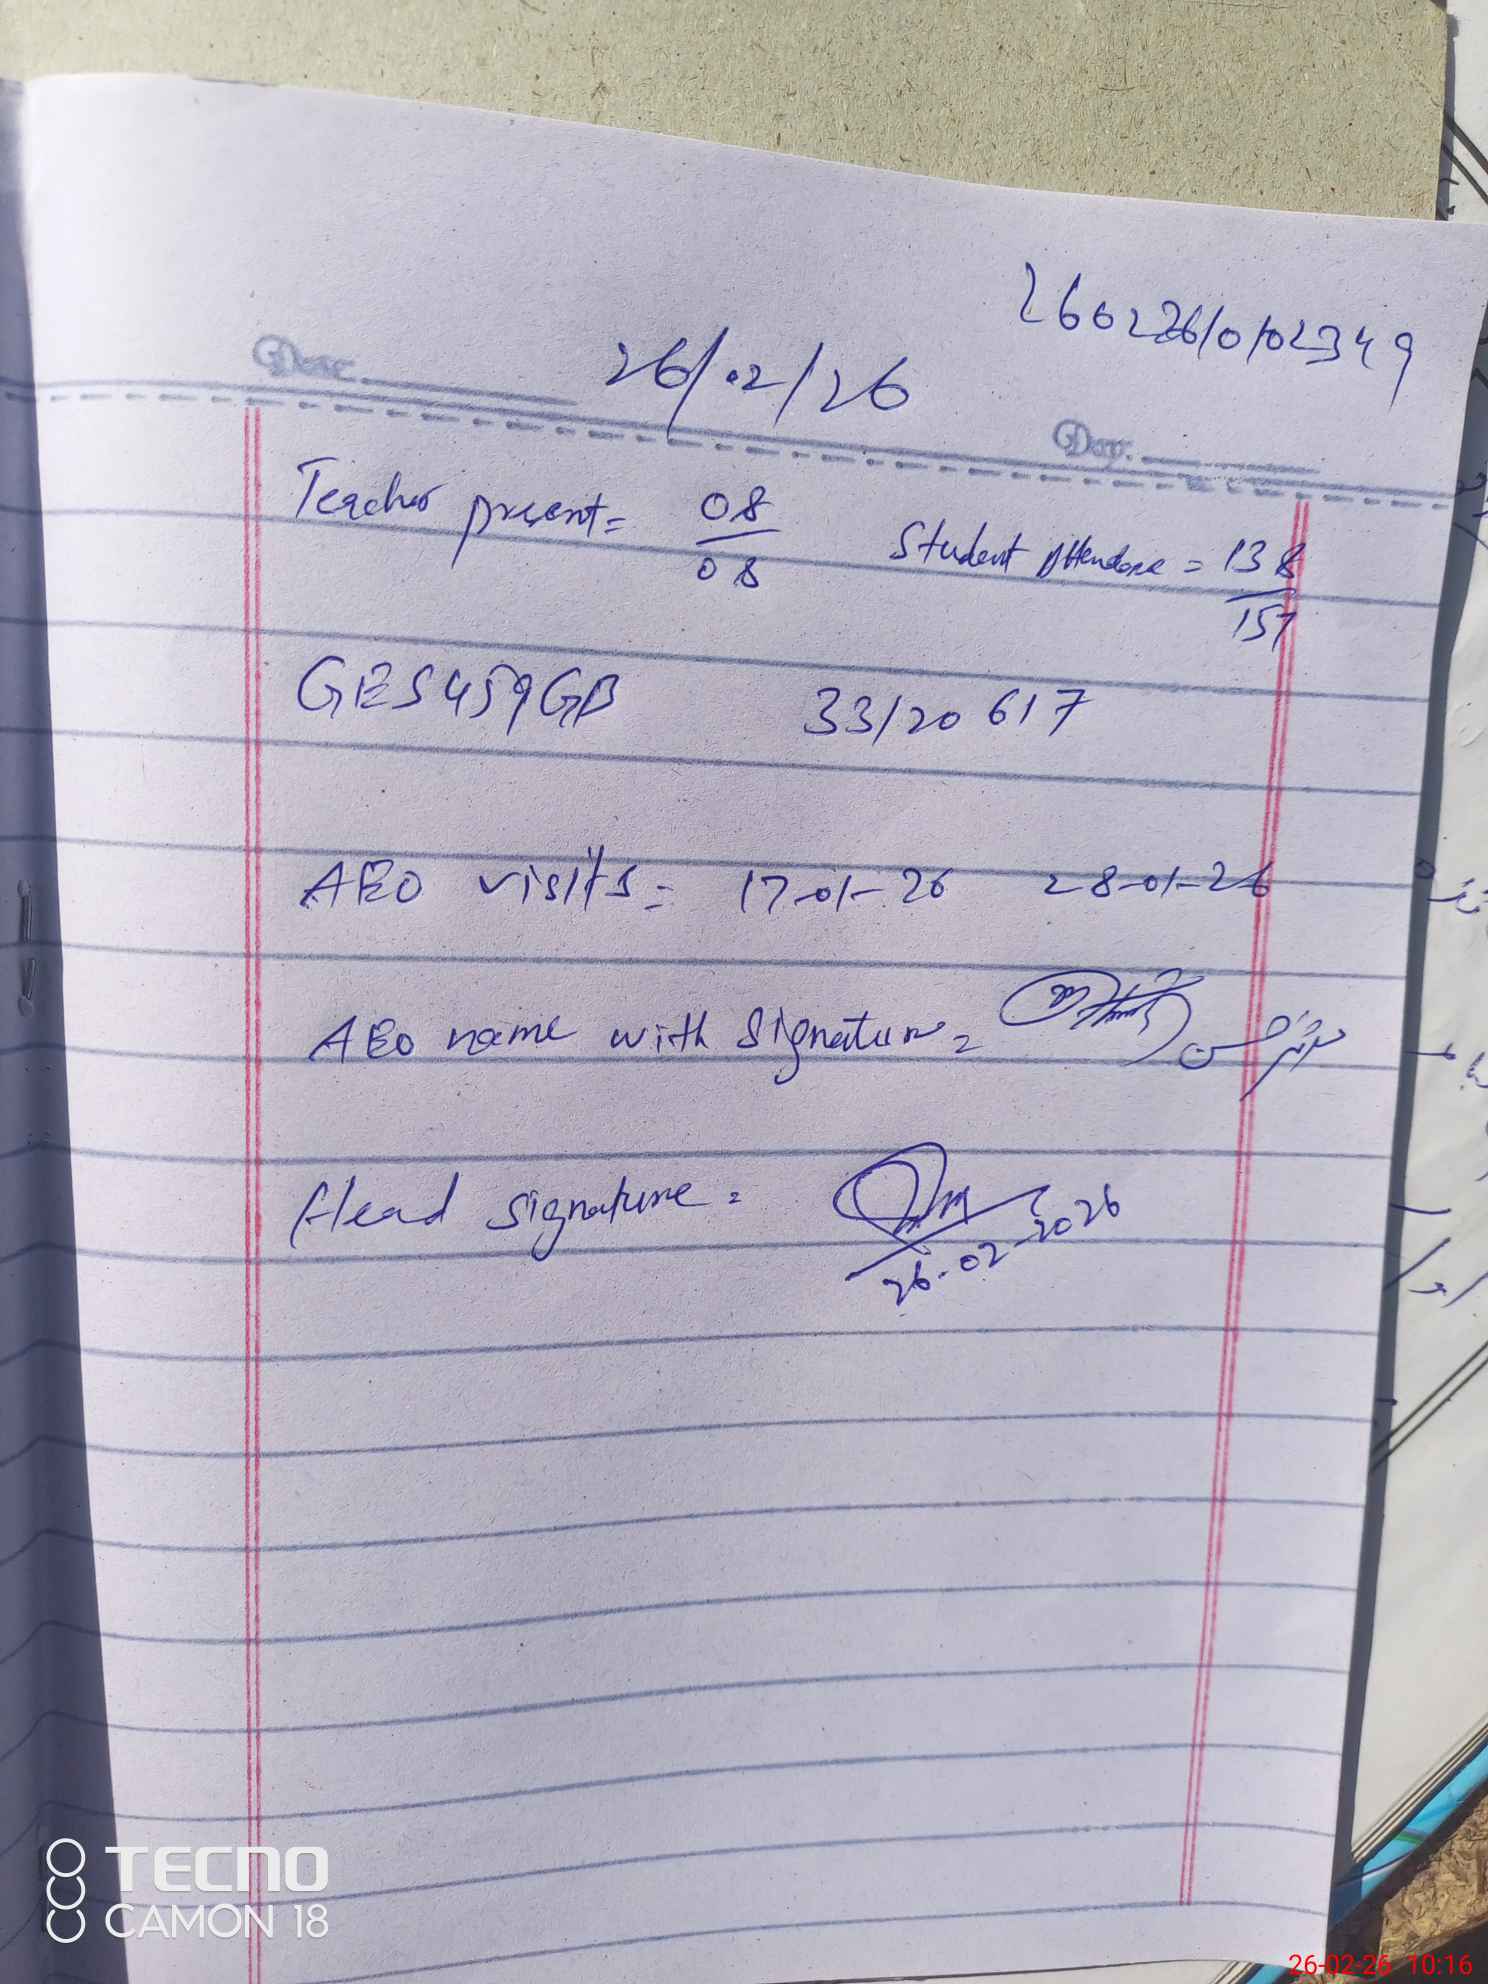 26022610102349
Date. 26/02/26
Day.
Teacher present = 08/08 Student Attendance = 138/157
GES459GB 33/20617
AEO visits = 17-01-26 28-01-26
AEO name with Signature =
Head signature =
26-02-2026
TECNO
CAMON 18
26-02-26 10:16